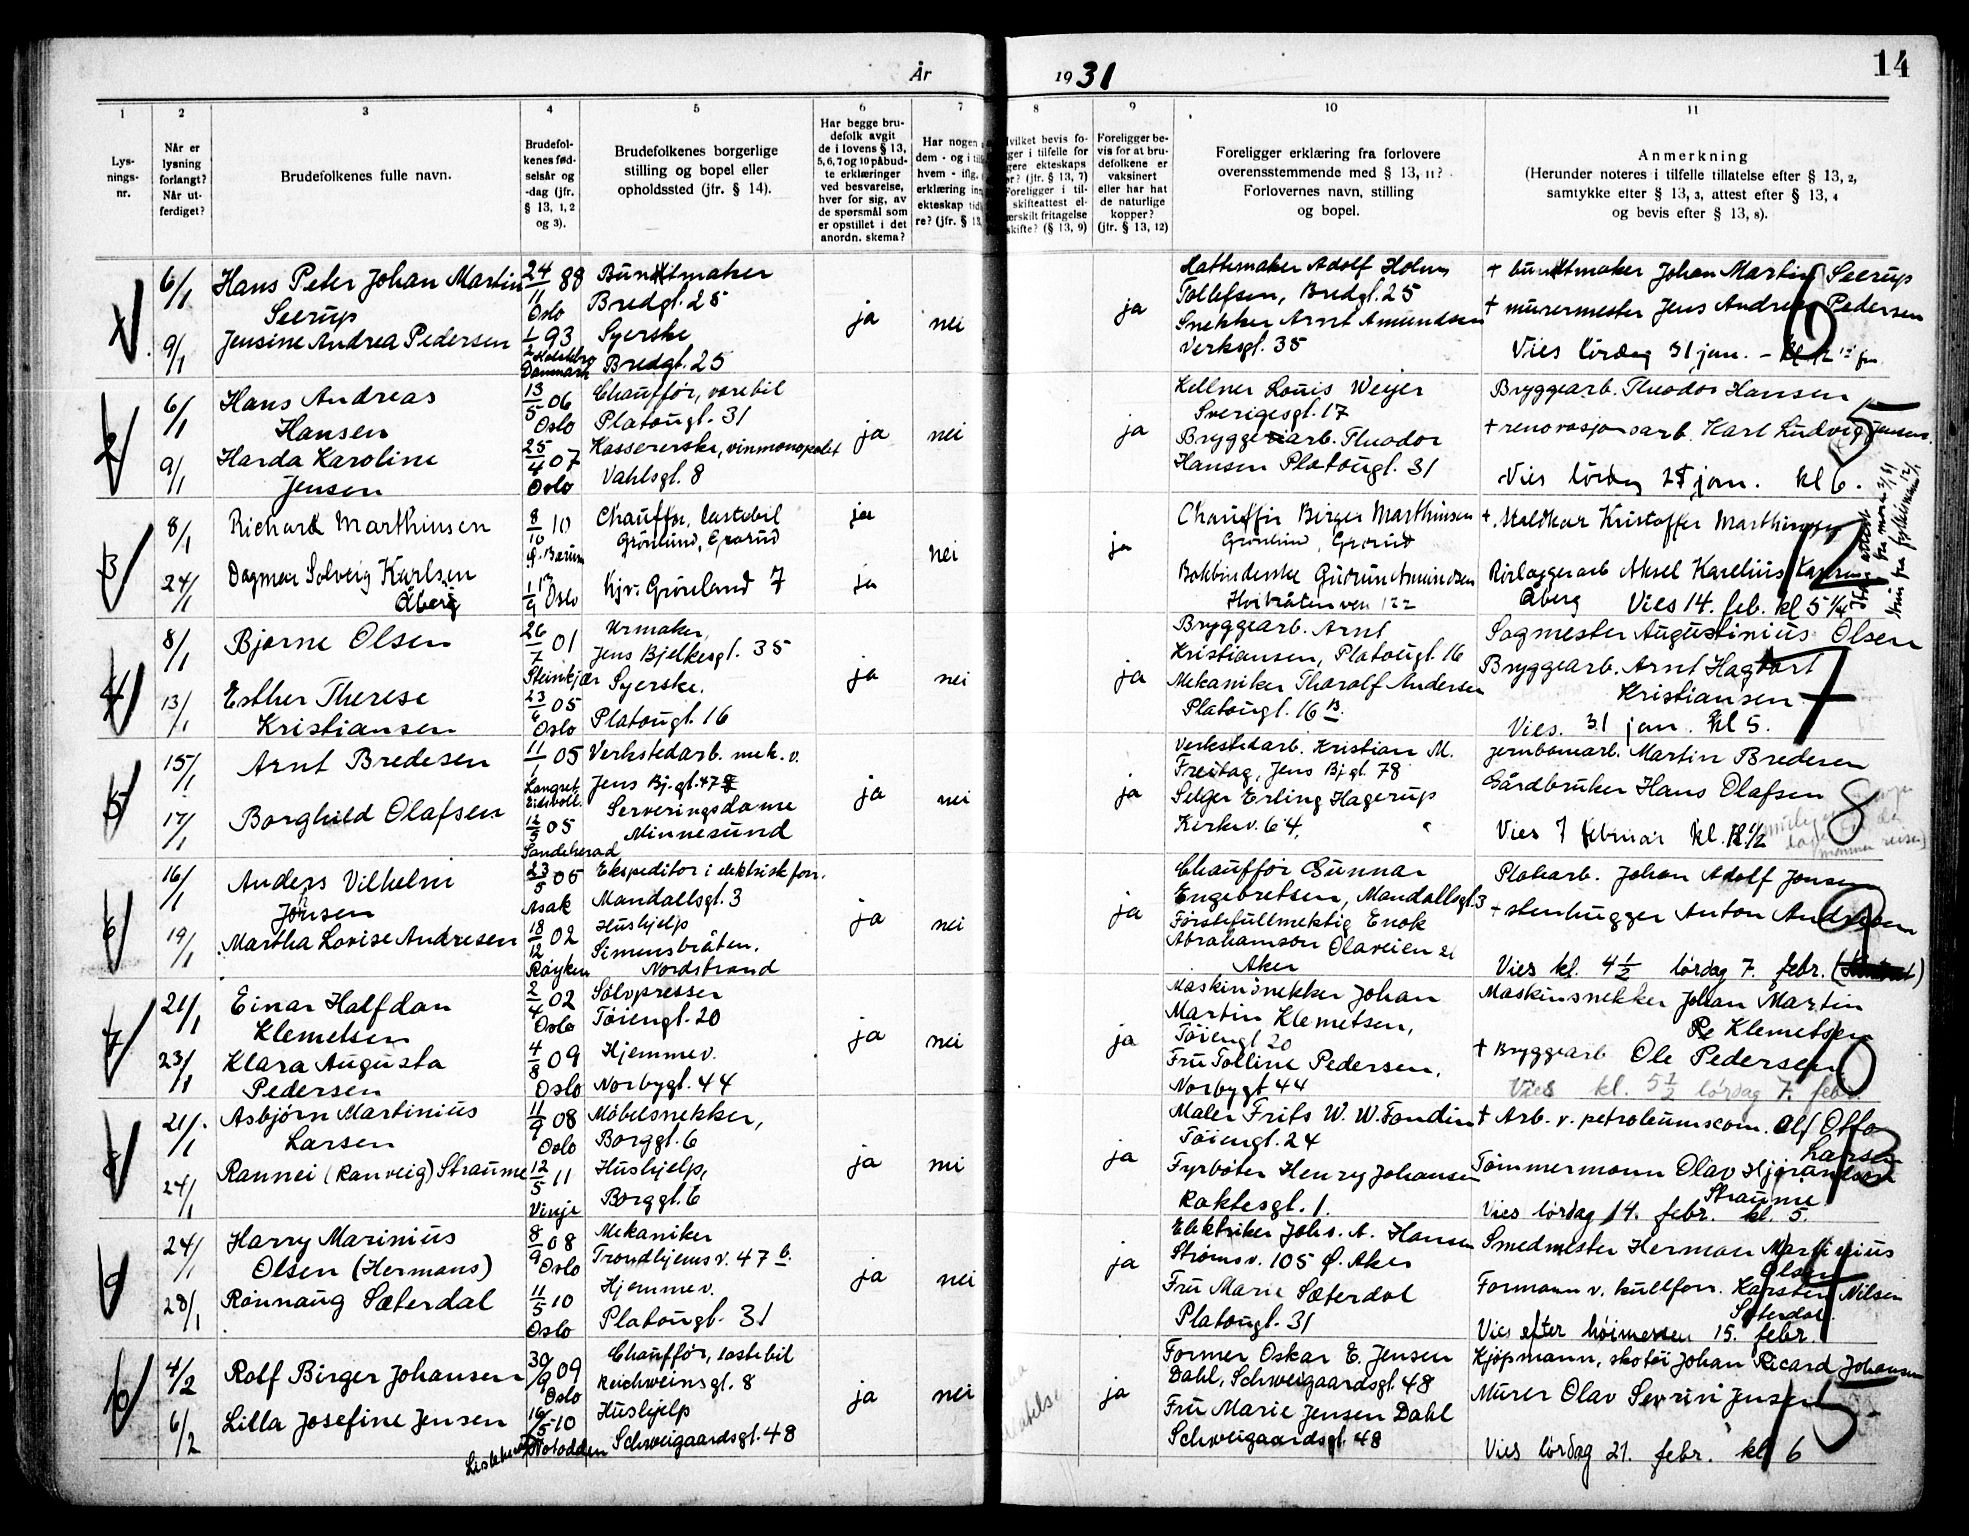 År 1931
14
1 2 3 4 5 6 7 8 9 10 11
Lys-
nings-
nr.
Når er
lysning
forlangt?
Når ut-
ferdiget?
Brudefolkenes fulle navn.
Brudefol-
kenes fød-
selsår og
-dag (jfr.
§ 13, 1, 2
og 3).
Brudefolkenes borgerlige
stilling og bopel eller
opholdssted (jfr. § 14).
Har begge bru-
defolk avgit
de i lovens § 13,
5, 6, 7 og 10 påbud-
te erklæringer
ved besvarelse,
hver for sig, av
de spørsmål som
er opstillet i det
anordn. skema?
Har nogen
dem - og i
hvem - iflg.
erklæring
ekteskap tid
re? (jfr. § 13
Hvilket bevis fo-
ger i tilfelle for
gere ekteskaps
or? (jfr. § 13, 7)
Foreligger i til-
skifteattest el-
ærskilt fritagelse
skifte? (§ 13, 9)
Foreligger be-
vis for at bru-
defolkene er
vaksinert
eller har hat
de naturlige
kopper?
(jfr. § 13, 12)
Foreligger erklæring fra forlovere
overensstemmende med § 13, 11?
Forlovernes navn, stilling
og bopel.
Anmerkning
(Herunder noteres i tilfelle tillatelse efter § 13, 2,
samtykke efter § 13, 3, attest efter § 13, 4
og bevis efter § 13, 8).
1
6/1
9/1
Hans Peter Johan Martin
Seerup
Jensine Andrea Pedersen
24/11 88
Oslo
1/2 93
Holstebro
Danmark
Buntmaker
Bredgt. 25
Syerske
Bredgt. 25
ja
nei
ja
Hattemaker Adolf Holm
Tollefsen, Bredgt. 25
Snekker Arnt Amundsen
Verksgt. 35
† buntmaker Johan Martin Seerup
† murermester Jens Andreas Pedersen
Vies lördag 31 jan. - kl. 12
6
2
6/1
9/1
Hans Andreas
Hansen
Harda Karoline
Jensen
13/5 06
Oslo
25/4 07
Oslo
Chauffør, varebil
Platougt. 31
Kassererske, vinmonopolet
Vahlsgt. 8
ja
nei
ja
Kellner Louis Weyer
Sverigesgt. 17
Bryggearb. Theodor
Hansen Platougt. 31
Bryggearb. Theodor Hansen
† renovasjonsarb. Karl Ludvig Jensen.
Vies lördag 24 jan. kl 6.
5
3
8/1
24/1
Richard Marthinsen
Dagmar Solveig Karlsen
Åberg
8/10 10
Ø. Bærum
1/9 13 Oslo
Chauffør, lastebil
Grönlund, Grorud
Kjv: Grønland 7
ja
ja
nei
ja
Chauffør Birger Marthinsen
Grönlund, Grorud
Bokbinderske Gudrun Amundsen
Hvitbråtenven 122
† Kristoffer Marthinsen
Rørleggerarb Aksel Karelius Karlsen
Åberg Vies 14. feb. kl 5 1/4
12
4
8/1
13/1
Bjarne Olsen
Esther Therese
Kristiansen
26/7 01
Steinkjær
23/6 05
Oslo
Urmaker,
Jens Bjelkesgt. 35
Syerske.
Platougt. 16
ja
nei
ja
Bryggearb. Arnt
Kristiansen, Platougt. 16
Mekaniker Tharalf Andersen
Platougt. 16 B.
Sagmester Augustinius Olsen
Bryggearb. Arnt Hagbart
Kristiansen
Vies. 31 jan. kl 5.
7
5
15/1
17/1
Arnt Bredesen
Borghild Olafsen
11/1 05
Langset
Eidsvoll.
12/5 05
Sandeherad
Verkstedarb. mek. v.
Jens Bj. gt. 47
Serveringsdame
Minnesund
ja
nei
ja
Verkstedarb. Kristian M.
Freitag, Jens Bj gt. 78
Selger Erling Hagerup
Kirkev. 64,
Jernbanearb. Martin Bredesen
Gårdbruker Hans Olafsen
Vies 7 februar kl.
8
6
16/1
19/1
Anders Vilhelm
Jonsen
Martha Lovise Andresen
23/5 05
Asak
18/12 02
Røyken
Ekspeditor i elektrisk forr.
Mandallsgt. 3
Hushjelp
Simensbråten.
Nordstrand
ja
nei
ja
Chauffør Gunnar
Engebretsen, Mandallsgt. 3
Førstefullmektig Enok
Abrahamson Olaveien 21
Aker
Platearb. Johan Adolf Jonsen
† stenhugger Anton Andresen
Vies kl. 4 1/2 lördag 7. febr.
9
7
21/1
23/1
Einar Halfdan
Klemetsen
Klara Augusta
Pedersen
2/4 02
Oslo
4/8 09
Oslo
Sølvpresser
Tøiengt. 20
Hjemmev.
Norbygt. 44
ja
nei
ja
Maskinsnekker Johan
Martin Klemetsen,
Tøiengt 20
Fru Tolline Pedersen,
Norbygt 44
Maskinsnekker Johan Martin
Klemetsen
† Bryggearb Ole Pedersen
Vies kl. 5 1/2 lördag 7. febr.
10
8
21/1
24/1
Asbjørn Martinius
Larsen
Rannei (Ranveig) Straume
11/9 08
Oslo
12/5 11
Vinje
Møbelsnekker,
Borggt. 6
Hushjelp,
Borggt. 6
ja
nei
ja
Maler Frits W. W. Fondin
Tøiengt. 24
Fyrbøter Henry Johansen
Raktesgt. 1.
† Arb. v. petroleumscom. Alf Otto
Larsen
Tømmermann Olav Hjørandsen
Straume
Vies lördag 14. febr. kl. 5.
13
9
24/1
28/1
Harry Marinius
Olsen (Hermans)
Rønnaug Sæterdal
8/9 08
Oslo
11/5 10
Oslo
Mekaniker
Trondhjemsv. 47 b.
Hjemmev.
Platougt. 31
ja
nei
ja
Elektriker Johs. A. Hansen
Strømsv. 105 Ø. Aker
Fru Marie Sæterdal
Platougt. 31
Smedmester Herman Martinius
Olsen
Formann v. kullforr. Karsten Nilsen
Sæterdal.
Vies efter høimessen 15. febr.
14
10
4/2
6/2
Rolf Birger Johansen
Lilla Josefine Jensen
30/9 09
Oslo
16/5 10
Notodden
Chauffør, lastebil
Reichweinsgt. 8
Hushjelp
Schweigaardsgt. 48
ja
nei
ja
Former Oskar E. Jensen
Dahl, Schweigaardsgt. 48
Fru Marie Jensen Dahl
Schweigaardsgt. 48
Kjøpmann, skotøi Johan Ricard Johansen
Murer Olav Severin Jensen
Vies lördag 21. febr. kl 6
15